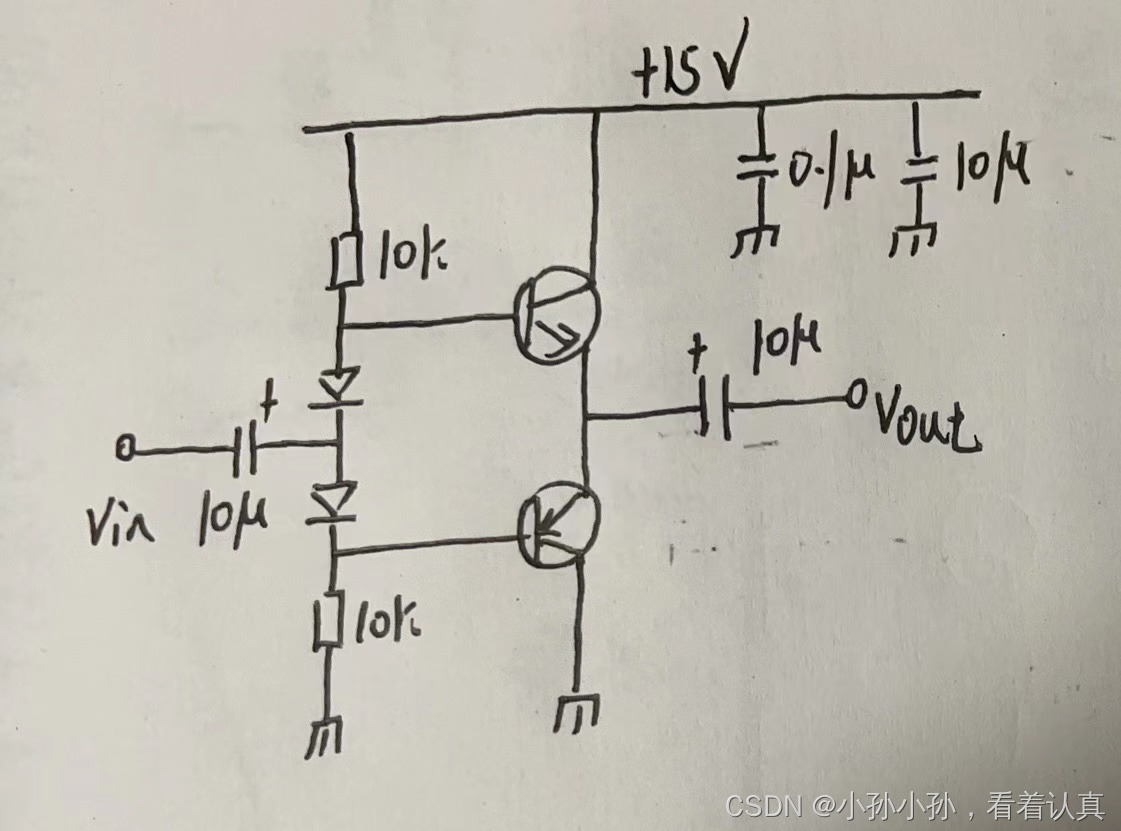 +15V
0.1μ
10μ
10k
10μ
+
+
Vout
Vin
10μ
10k
CSDN @小孙小孙，看着认真